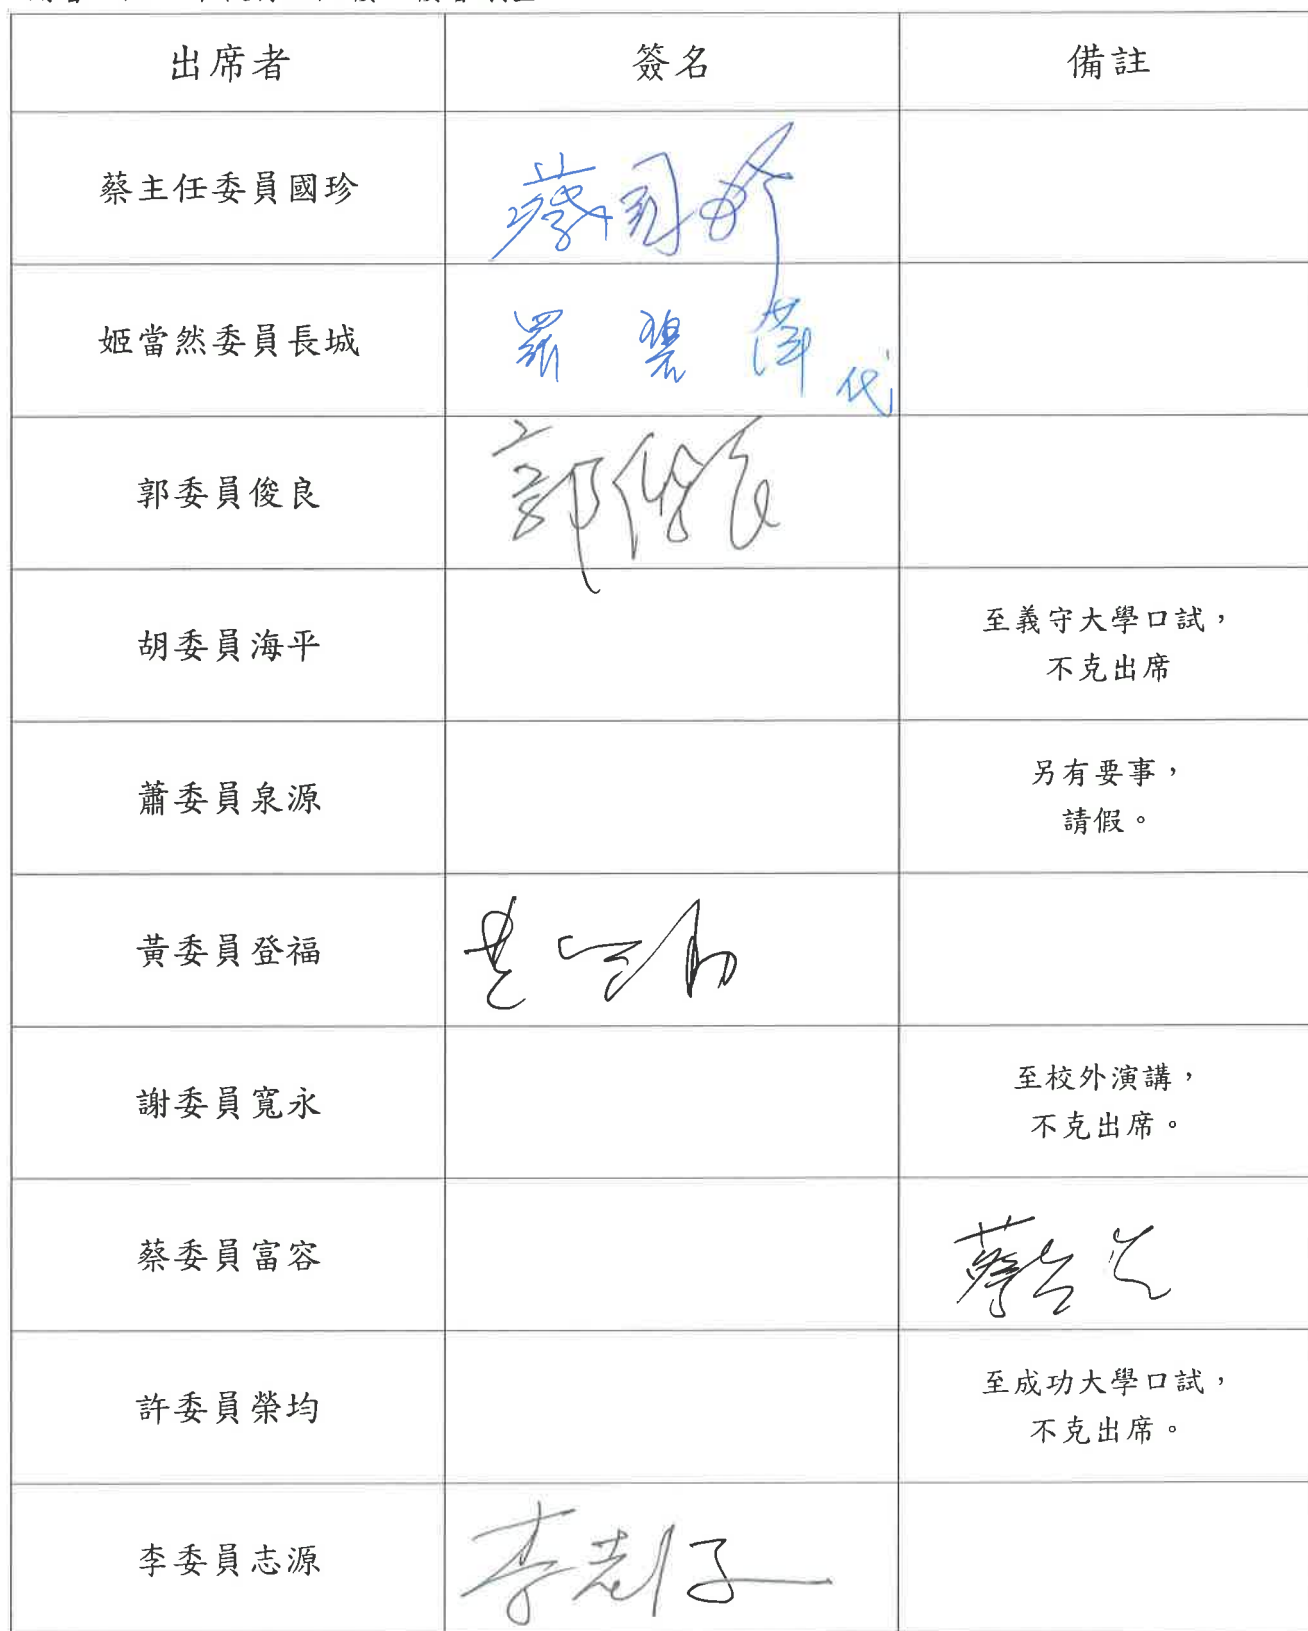 出席者 簽名 備註
蔡主任委員國珍 蔡國珍
姬當然委員長城 羅碧 代
郭委員俊良 郭俊良
胡委員海平 至義守大學口試，
不克出席
蕭委員泉源 另有要事，
請假。
黃委員登福
謝委員寬永 至校外演講，
不克出席。
蔡委員富容 蔡
許委員榮均 至成功大學口試，
不克出席。
李委員志源 李志